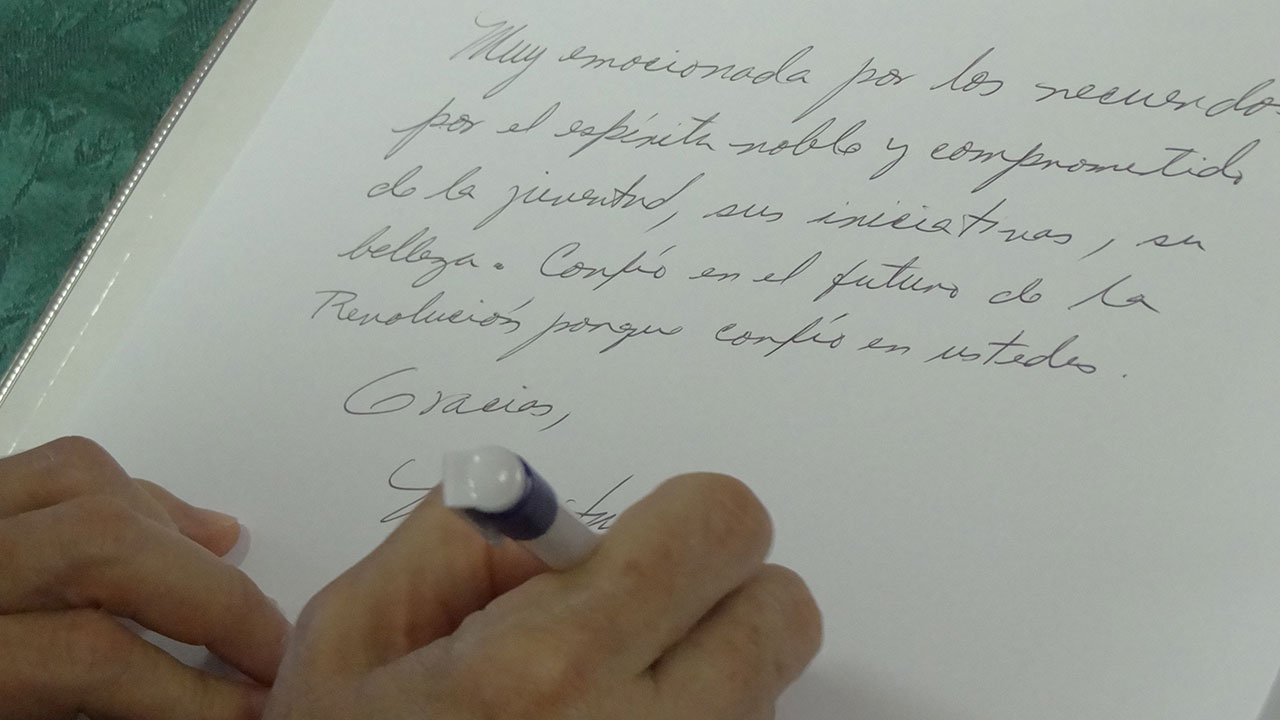 Muy emocionada por los recuerdo
por el espíritu noble y comprometido
de la juventud, sus iniciativas, su
belleza. Confío en el futuro de la
Revolución porque confío en ustedes.
Gracias,